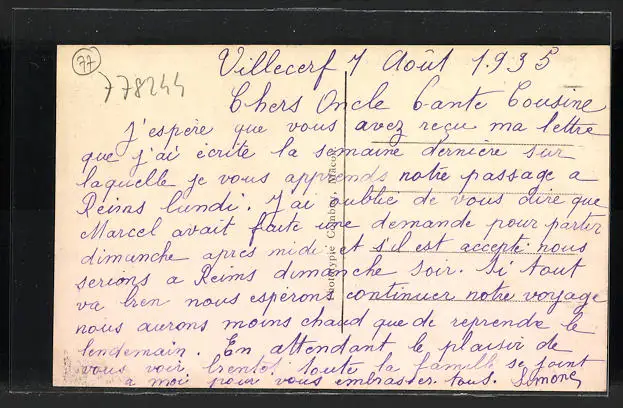 77
778244
Villecerf 7 Août 1935
Chers Oncle Tante Cousine
J'espère que vous avez reçu ma lettre
que j'ai écrite la semaine dernière sur
laquelle je vous apprends notre passage a
Reims lundi. J'ai oublié de vous dire que
Marcel avait faite une demande pour partir
dimanche après midi et s'il est accepté nous
serions a Reims dimanche soir. Si tout
va bien nous espérons continuer notre voyage
nous aurons moins chaud que de reprendre le
lendemain. En attendant le plaisir de
vous voir bientot toute la famille se joint
a moi pour vous embrasser tous. Simone
Phototypie Combier Macon